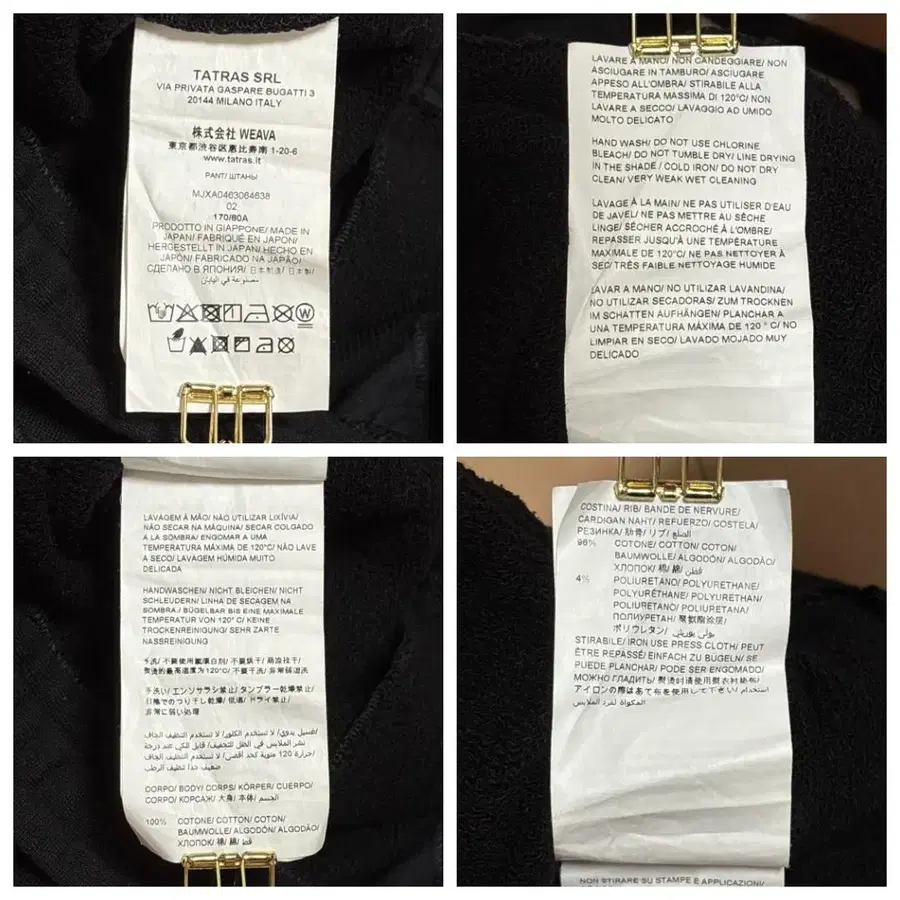 TATRAS SRL
VIA PRIVATA GASPARE BUGATTI 3
20144 MILANO ITALY
株式会社 WEAVA
東京都渋谷区恵比寿南 1-20-6
www.tatras.it
PANT/ ШТАНЫ
MJXA0463064638
02
170/80A
PRODOTTO IN GIAPPONE/ MADE IN
JAPAN/ FABRIQUÉ EN JAPON/
HERGESTELLT IN JAPAN/ HECHO EN
JAPÓN/ FABRICADO NA JAPÃO/
СДЕЛАНО В ЯПОНИЯ/ 日本制造/ 日本製/
مصنوعة في اليابان
LAVARE A MANO/ NON CANDEGGIARE/ NON
ASCIUGARE IN TAMBURO/ ASCIUGARE
APPESO ALL'OMBRA/ STIRABILE ALLA
TEMPERATURA MASSIMA DI 120°C/ NON
LAVARE A SECCO/ LAVAGGIO AD UMIDO
MOLTO DELICATO
HAND WASH/ DO NOT USE CHLORINE
BLEACH/ DO NOT TUMBLE DRY/ LINE DRYING
IN THE SHADE / COLD IRON/ DO NOT DRY
CLEAN/ VERY WEAK WET CLEANING
LAVAGE À LA MAIN/ NE PAS UTILISER D'EAU
DE JAVEL/ NE PAS METTRE AU SÈCHE
LINGE/ SÉCHER ACCROCHÉ À L'OMBRE/
REPASSER JUSQU'À UNE TEMPÉRATURE
MAXIMALE DE 120°C/ NE PAS NETTOYER À
SEC/ TRÈS FAIBLE NETTOYAGE HUMIDE
LAVAR A MANO/ NO UTILIZAR LAVANDINA/
NO UTILIZAR SECADORAS/ ZUM TROCKNEN
IM SCHATTEN AUFHÄNGEN/ PLANCHAR A
UNA TEMPERATURA MÁXIMA DE 120 ° C/ NO
LIMPIAR EN SECO/ LAVADO MOJADO MUY
DELICADO
LAVAGEM À MÃO/ NÃO UTILIZAR LIXÍVIA/
NÃO SECAR NA MÁQUINA/ SECAR COLGADO
A LA SOMBRA/ ENGOMAR A UMA
TEMPERATURA MÁXIMA DE 120°C/ NÃO LAVE
A SECO/ LAVAGEM HÚMIDA MUITO
DELICADA
HANDWASCHEN/ NICHT BLEICHEN/ NICHT
SCHLEUDERN/ LINHA DE SECAGEM NA
SOMBRA./ BÜGELBAR BIS EINE MAXIMALE
TEMPERATUR VON 120° C/ KEINE
TROCKENREINIGUNG/ SEHR ZARTE
NASSREINIGUNG
手洗/ 不要使用氯漂白剂/ 不要烘干/ 荫凉挂干/
熨烫的最高温度为120°C/ 不要干洗/ 非常弱湿洗
手洗い/ エンソサラシ禁止/ タンブラー乾燥禁止/
日陰でのつり干し乾燥/ 低温/ ドライ禁止/
非常に弱い処理
غسيل يدوي/ لا تستخدم الكلور/ لا تستخدم التنظيف الجاف
نشر الملابس في الظل للتجفيف/ قابل للكي عند درجة
حرارة 120 مئوية كحد أقصى/ لا تستخدم التنظيف الجاف/
ضعيف جدا تنظيف الرطب
CORPO/ BODY/ CORPS/ KÖRPER/ CUERPO/
CORPO/ КОРСАЖ/ 大身/ 本体/ الجسم
100% COTONE/ COTTON/ COTON/
BAUMWOLLE/ ALGODÓN/ ALGODÃO/
ХЛОПОК/ 棉/ 綿/ قطن
COSTINA/ RIB/ BANDE DE NERVURE/
CARDIGAN NAHT/ REFUERZO/ COSTELA/
РЕЗИНКА/ 肋骨/ リブ/ الضلع
96% COTONE/ COTTON/ COTON/
BAUMWOLLE/ ALGODÓN/ ALGODÃO/
ХЛОПОК/ 棉/ 綿/ قطن
4% POLIURETANO/ POLYURETHANE/
POLYURÉTHANE/ POLYURETHAN/
POLIURETANO/ POLIURETANA/
ПОЛИУРЕТАН/ 聚氨酯涂层/
ポリウレタン/ بولي يوريثي
STIRABILE/ IRON USE PRESS CLOTH/ PEUT
ÊTRE REPASSÉ/ EINFACH ZU BÜGELN/ SE
PUEDE PLANCHAR/ PODE SER ENGOMADO/
МОЖНО ГЛАДИТЬ/ 熨烫时请使用熨衣衬垫布/
アイロンの際はあて布を使用して下さい/ استخدام
المكواة لفرد الملابس
NON STIRARE SU STAMPE E APPLICAZIONI/